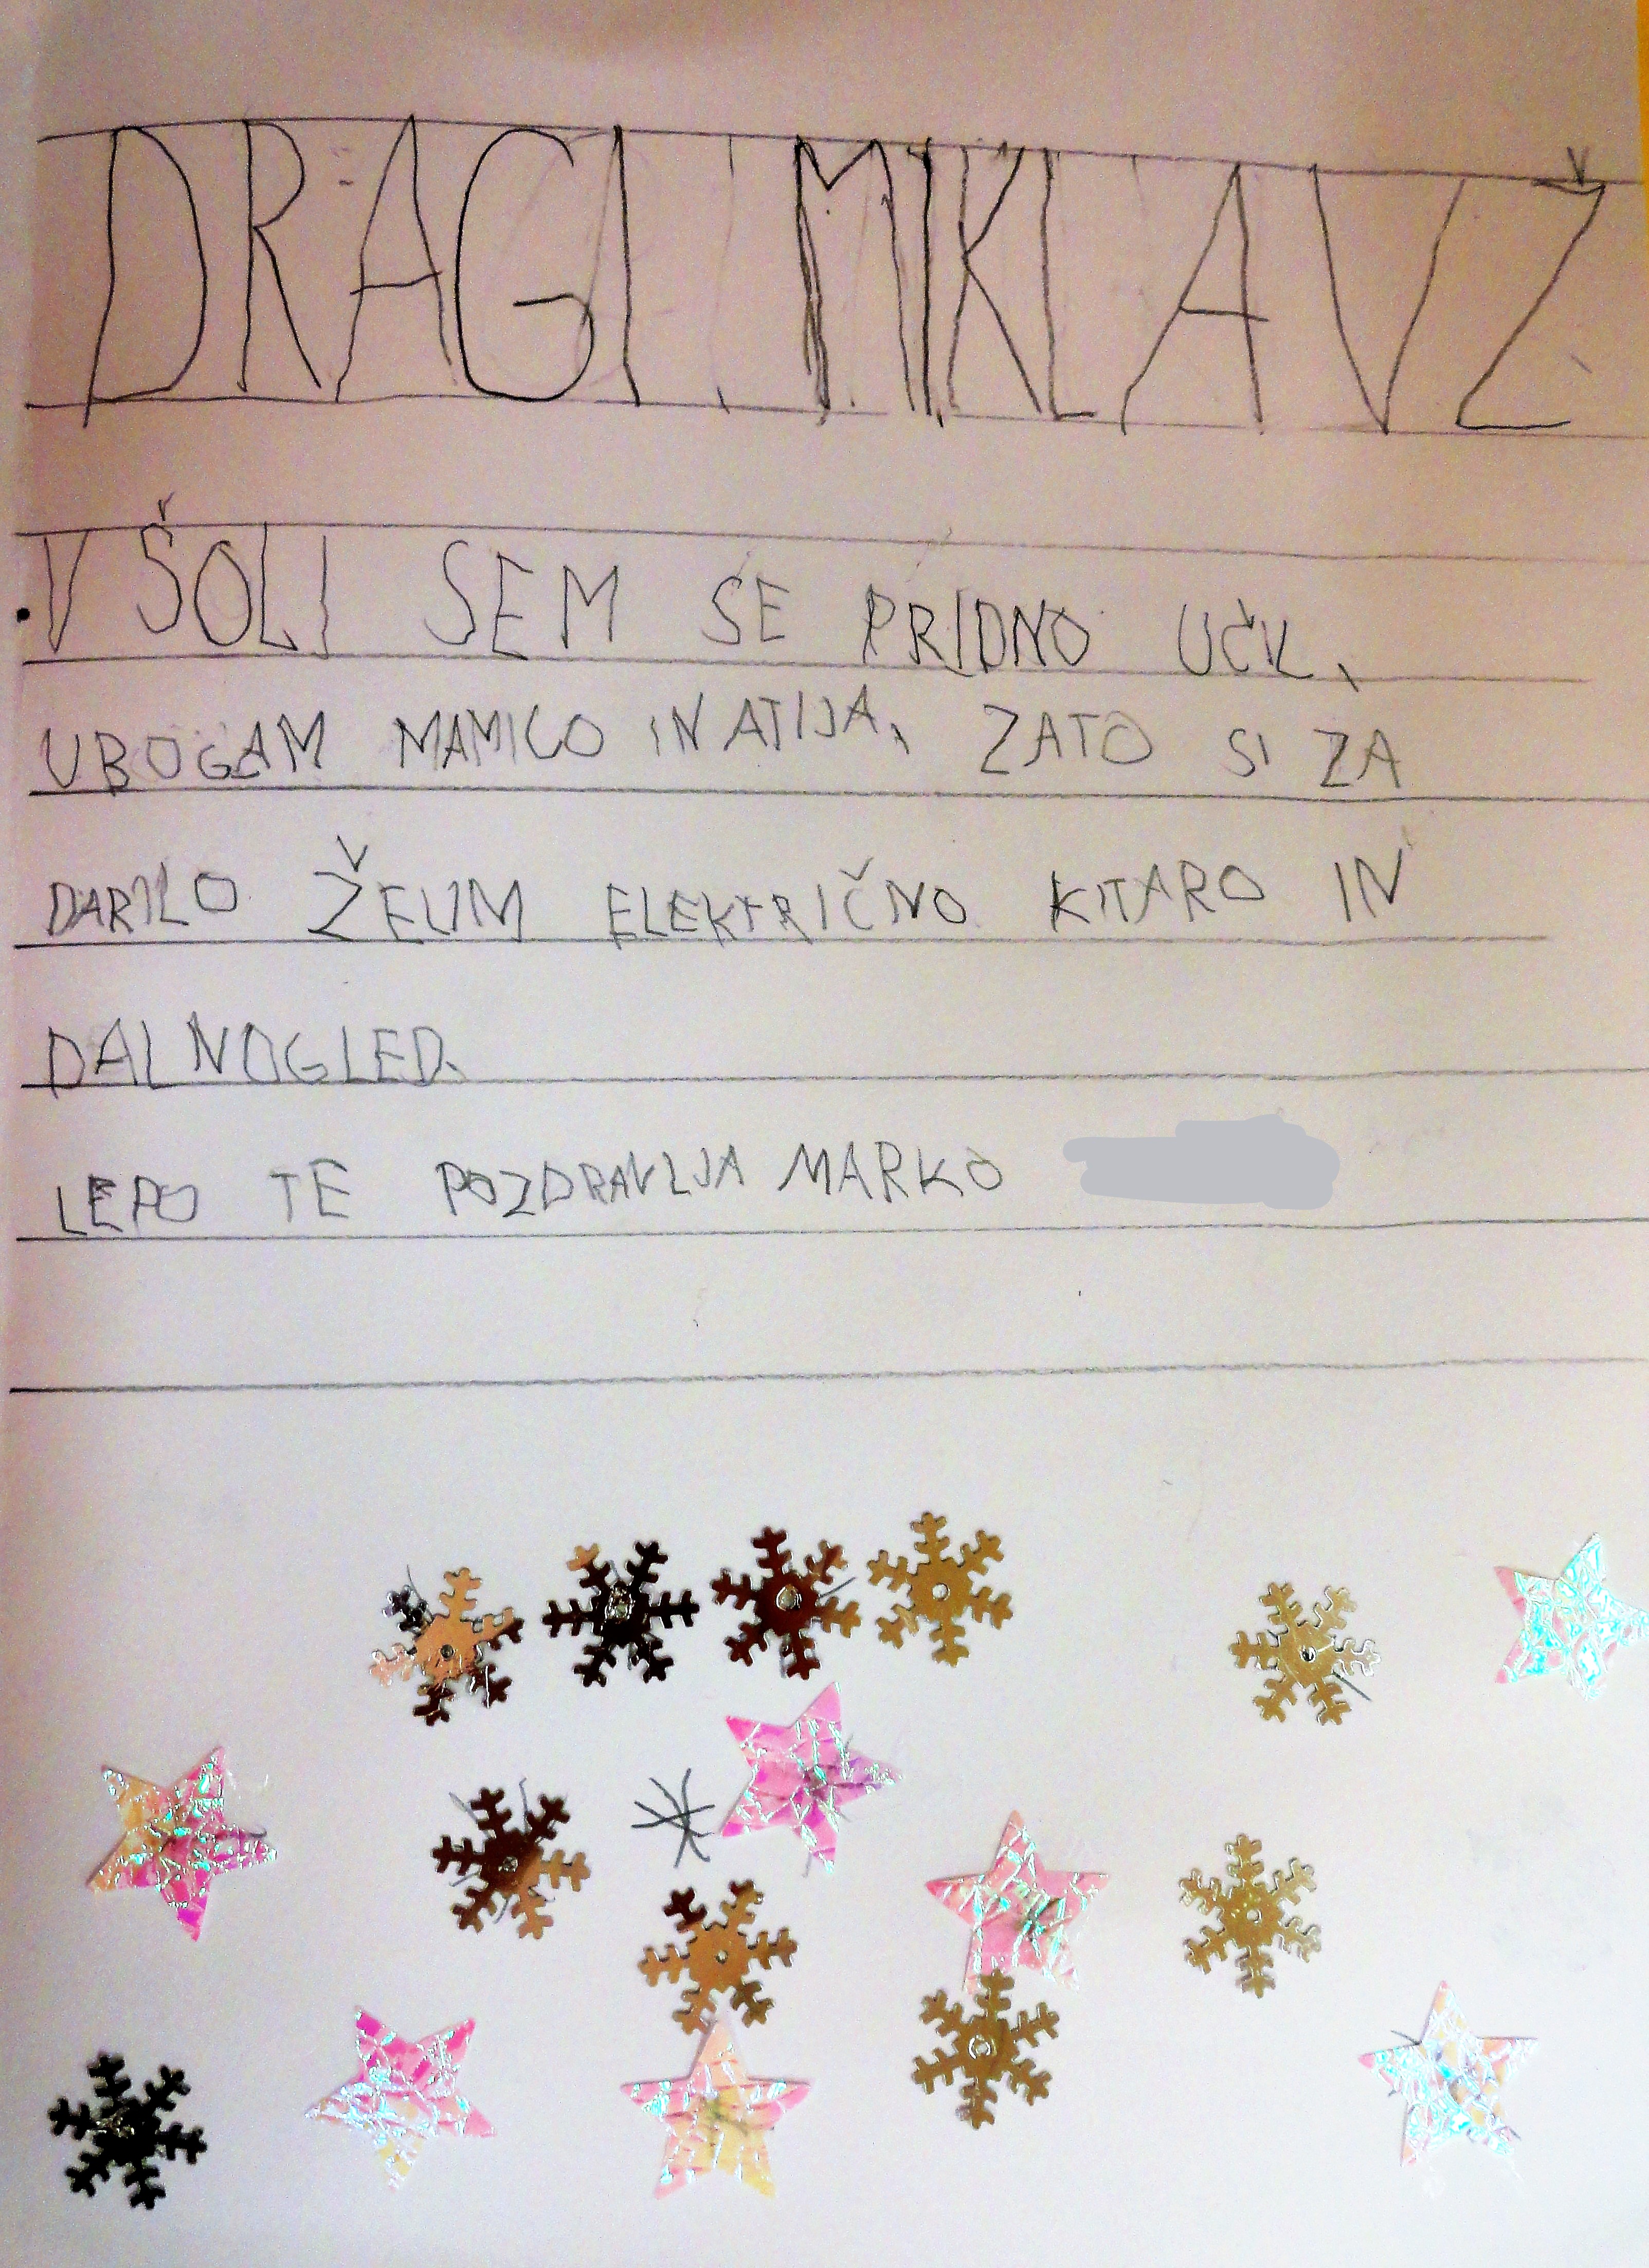 DRAGI MIKLAVŽ
V ŠOLI SEM SE PRIDNO UČIL,
UBOGAM MAMICO IN ATIJA, ZATO SI ZA
DARILO ŽELIM ELEKTRIČNO KITARO IN
DALNOGLED.
LEPO TE POZDRAVLJA MARKO